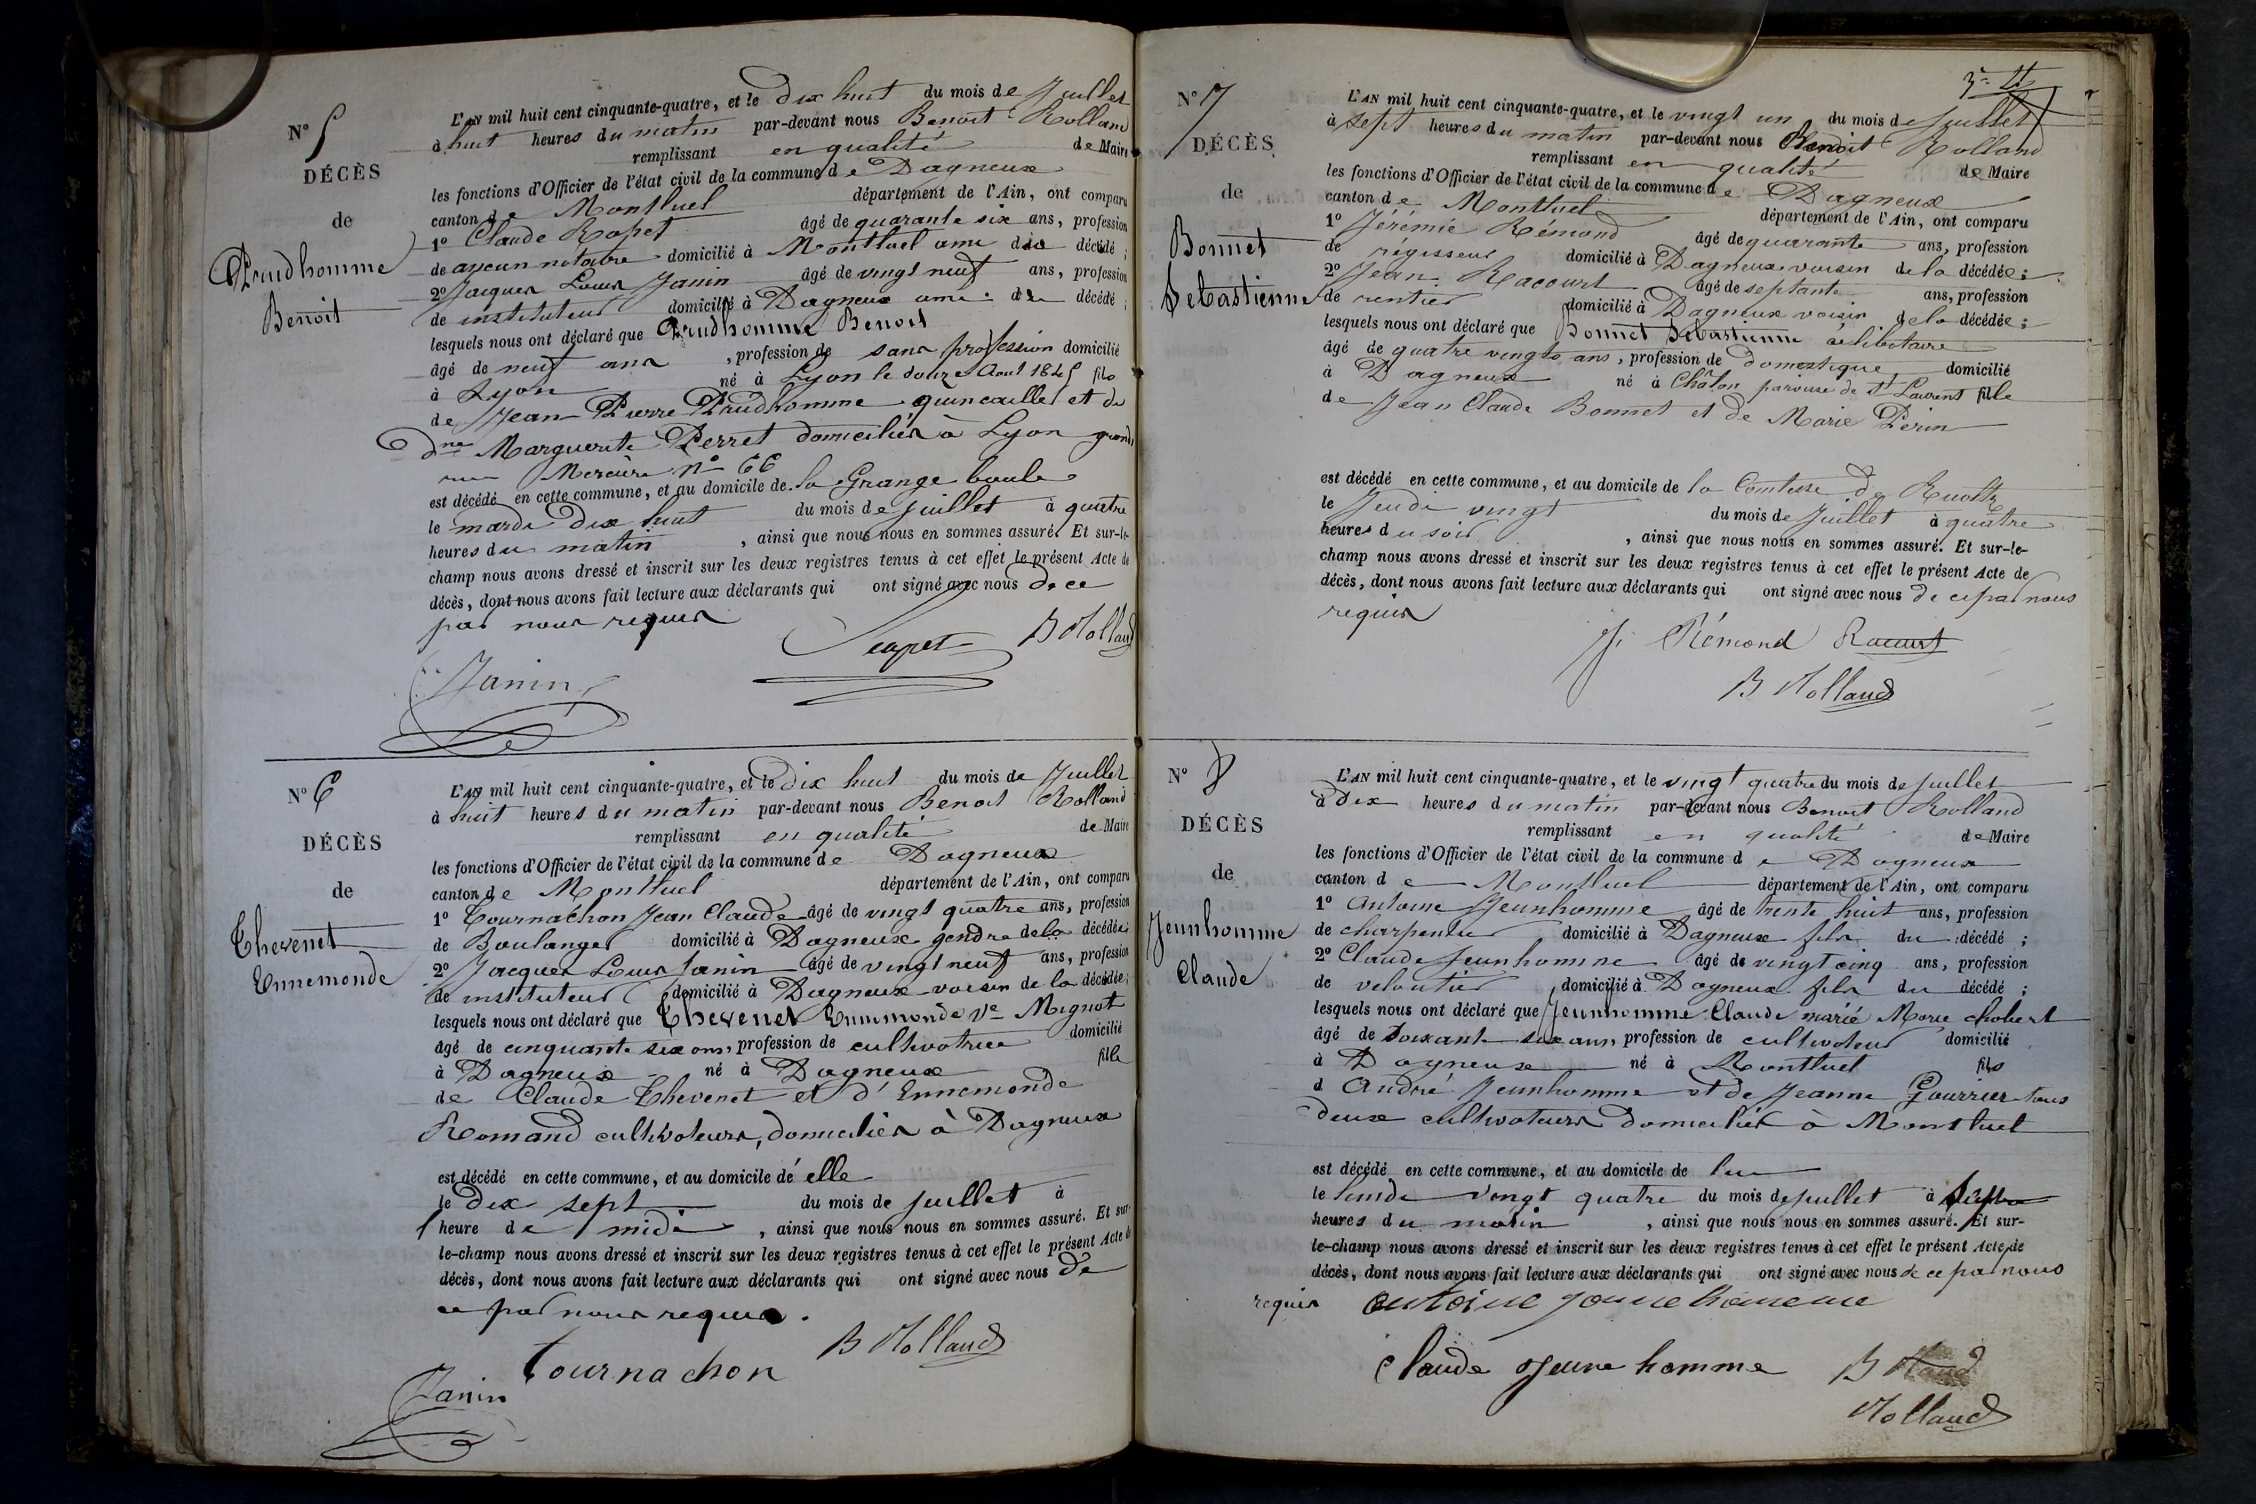 N° 5
DÉCÈS
de
Prudhomme
Benoit
L'AN mil huit cent cinquante-quatre, et le dix huit du mois de Juillet
à huit heures du matin par-devant nous Benoit Rolland
remplissant en qualité de Maire
les fonctions d'Officier de l'état civil de la commune de Dagneux
canton de Montluel département de l'Ain, ont comparu
1° Claude Rapet âgé de quarante six ans, profession
de ancien notaire domicilié à Montluel ami du décédé ;
2° Jacques Louis Janin âgé de vingt neuf ans, profession
de instituteur domicilié à Dagneux ami du décédé ;
lesquels nous ont déclaré que Prudhomme Benoit
âgé de neuf ans, profession de sans profession domicilié
à Lyon né à Lyon le douze Aout 1845 fils
de Jean Pierre Prudhomme quincailler et de
dne Marguerite Perret domiciliés à Lyon grande
rue Mercière n° 66
est décédé en cette commune, et au domicile de la Grange boule
le mardi dix huit du mois de juillet à quatre
heures du matin, ainsi que nous nous en sommes assuré. Et sur-le-
champ nous avons dressé et inscrit sur les deux registres tenus à cet effet le présent Acte de
décès, dont nous avons fait lecture aux déclarants qui ont signé avec nous de ce
par nous requis
Rapet B Rolland
Janin
N° 6
DÉCÈS
de
Thevenet
Ennemonde
L'AN mil huit cent cinquante-quatre, et le dix huit du mois de Juillet
à huit heures du matin par-devant nous Benoit Rolland
remplissant en qualité de Maire
les fonctions d'Officier de l'état civil de la commune de Dagneux
canton de Montluel département de l'Ain, ont comparu
1° Tournachon Jean Claude âgé de vingt quatre ans, profession
de Boulanger domicilié à Dagneux gendre de la décédée ;
2° Jacques Louis Janin âgé de vingt neuf ans, profession
de instituteur domicilié à Dagneux voisin de la décédée ;
lesquels nous ont déclaré que Thevenet Ennemonde Ve Mignot
âgé de cinquante six ans, profession de cultivatrice domicilié
à Dagneux né à Dagneux fille
de Claude Thevenet et d'Ennemonde
Romand cultivateurs, domiciliés à Dagneux
est décédé en cette commune, et au domicile d'elle
le dix sept du mois de juillet à
1 heure de midi, ainsi que nous nous en sommes assuré. Et sur-
le-champ nous avons dressé et inscrit sur les deux registres tenus à cet effet le présent Acte de
décès, dont nous avons fait lecture aux déclarants qui ont signé avec nous de
ce par nous requis.
B Rolland
Tournachon
Janin
N° 7
DÉCÈS
de
Bonnet
Sebastienne
L'AN mil huit cent cinquante-quatre, et le vingt un du mois de juillet
à sept heures du matin par-devant nous Benoit Rolland
remplissant en qualité de Maire
les fonctions d'Officier de l'état civil de la commune de Dagneux
canton de Montluel département de l'Ain, ont comparu
1° Jérémie Rémond âgé de quarante ans, profession
de régisseur domicilié à Dagneux voisin de la décédée ;
2° Jean Racourt âgé de septante ans, profession
de rentier domicilié à Dagneux voisin de la décédée ;
lesquels nous ont déclaré que Bonnet Sebastienne célibataire
âgé de quatre vingts ans, profession de domestique domicilié
à Dagneux né à Châlon paroisse de St Laurent fille
de Jean Claude Bonnet et de Marie Périn
est décédé en cette commune, et au domicile de la Comtesse de
le Jeudi vingt du mois de juillet à quatre
heures du soir, ainsi que nous nous en sommes assuré. Et sur-le-
champ nous avons dressé et inscrit sur les deux registres tenus à cet effet le présent Acte de
décès, dont nous avons fait lecture aux déclarants qui ont signé avec nous de ce par nous
requis
J. Rémond Racourt
B Rolland
N° 8
DÉCÈS
de
Jeunhomme
Claude
L'AN mil huit cent cinquante-quatre, et le vingt quatre du mois de juillet
à dix heures du matin par-devant nous Benoit Rolland
remplissant en qualité de Maire
les fonctions d'Officier de l'état civil de la commune de Dagneux
canton de Montluel département de l'Ain, ont comparu
1° Antoine Jeunhomme âgé de trente huit ans, profession
de charpentier domicilié à Dagneux fils du décédé ;
2° Claude Jeunhomme âgé de vingt cinq ans, profession
de veloutier domicilié à Dagneux fils du décédé ;
lesquels nous ont déclaré que Jeunhomme Claude marié Marie chobert
âgé de soixante six ans, profession de cultivateur domicilié
à Dagneux né à Montluel fils
d André Jeunhomme et de Jeanne Gourrier tous
deux cultivateurs domiciliés à Montluel
est décédé en cette commune, et au domicile de lui
le lundi vingt quatre du mois de juillet à
heures du matin, ainsi que nous nous en sommes assuré. Et sur-
le-champ nous avons dressé et inscrit sur les deux registres tenus à cet effet le présent Acte de
décès, dont nous avons fait lecture aux déclarants qui ont signé avec nous de ce par nous
requis antoine jeune homme
Claude Jeune homme B
Rolland